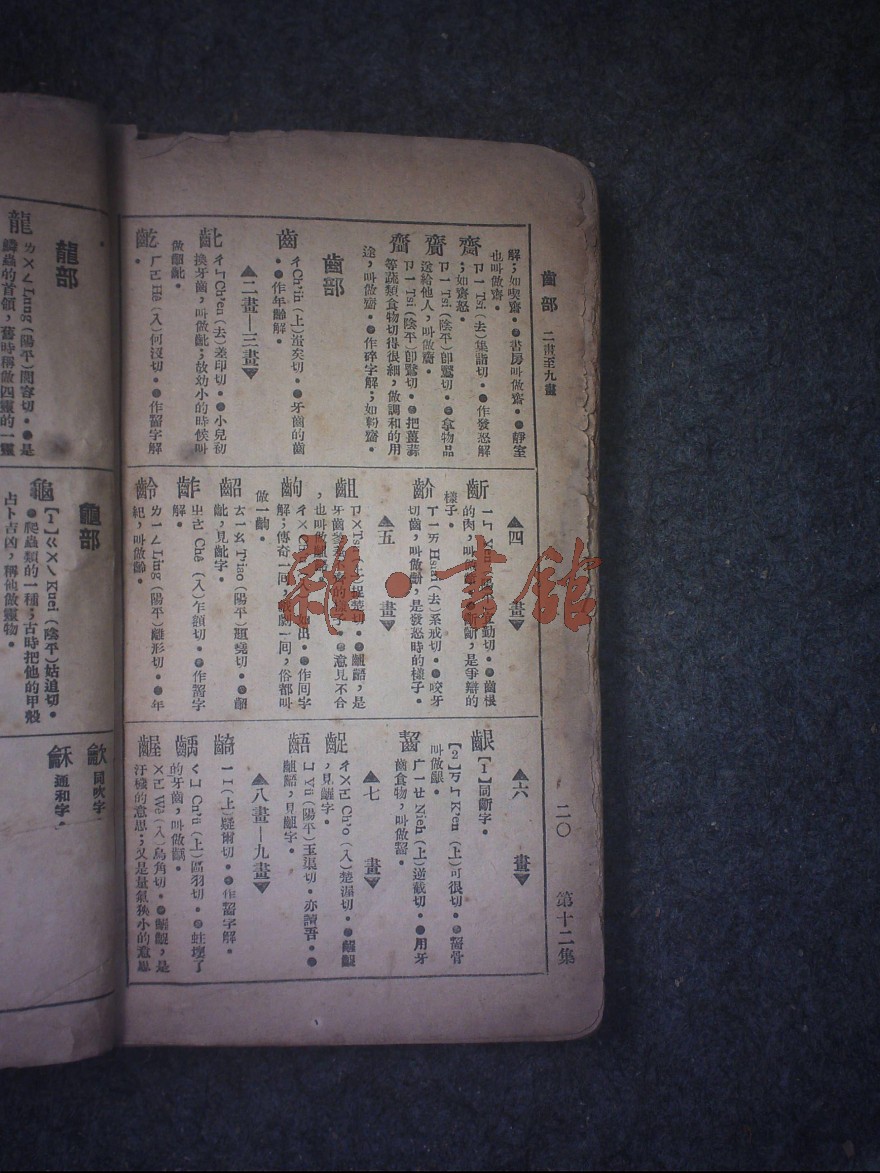 齒部 二畫至九畫
二〇 第十二集
解;如喫齋。●書房叫做齋。●靜室
也叫做齋。
齌 ㄗㄧ Tsi(去)集詣切。●作發怒解
;如齌怒。
ㄗㄧ Tsi(陰平)卽鷖切。●拿物品
送給他人,叫做齎。
齏 ㄗㄧ Tsi(陰平)卽鷖切。●把薑蒜
等蔬類食物切得很細,做調和的用
途,叫做齏。●作碎字解;如粉齏。
齒部
齒 ㄔ Ch'ih(上)蚩矣切。●牙齒的齒
。●作年齡解。
▲二畫—三畫▼
齔 ㄔㄣ Ch'en(去)差印切。●小兒初
換牙齒,叫做齔;故幼小的時候叫
做齠齔。
齕 ㄏㄜ Hê(入)何沒切。●作齧字解
。
▲四 畫▼
齗
切。●齒根
的肉,叫做
齗,是爭辯的
樣子。
齘 ㄒㄧㄞ Hsiai(去)系戒切。●咬牙
切齒,叫做齘,是發怒時的樣子。
▲五 畫▼
齟
切。●齟齬,是
牙齒
的樣子。●意見不合
,也叫做齟
齣
出。●作回字
解;傳奇一回,戲劇一回,俗都叫
做一齣。
齠 ㄊㄧㄠ T'iao(陽平)題堯切。●齠
齔,見齔字。
齚 ㄓㄜ Chê(入)乍額切。●作齧字
解。
齡 ㄌㄧㄥ Ling(陽平)離形切。●年
紀,叫做齡。
▲六 畫▼
齦 【1】同齗字。
【2】ㄎㄣ K'en(上)可很切。●齧骨
叫做齦。
齧 ㄏㄧㄝ Nieh(上)逆截切。●用牙
齒食物,叫做齧。
▲七 畫▼
齪 ㄔㄨㄛ Ch'o(入)楚渥切。●齷齪
,見齷字。
齬 ㄩ Yü(陽平)玉渠切。亦讀吾。●
齟齬,見齟字。
▲八畫—九畫▼
齮 ㄧ I(上)疑爾切。●作齧字解。
齲 ㄑㄩ Ch'ü(上)區羽切。●蛀壞了
的牙齒,叫做齲。
齷 ㄨㄛ Wo(入)烏角切。●齷齪,是
汙穢的意思;又是量氣狹小的意思
龍部
龍 ㄌㄨㄥ Lung(陽平)閭容切。●是
鱗蟲的首領,舊時稱做四靈的一靈
龜部
龜 【1】ㄍㄨㄟ Kuei(陰平)姑追切。
●爬蟲類的一種;古時把他的甲殼
占卜吉凶,稱他做靈物。
龡 同吹字。
龢 通和字。
雜·書館